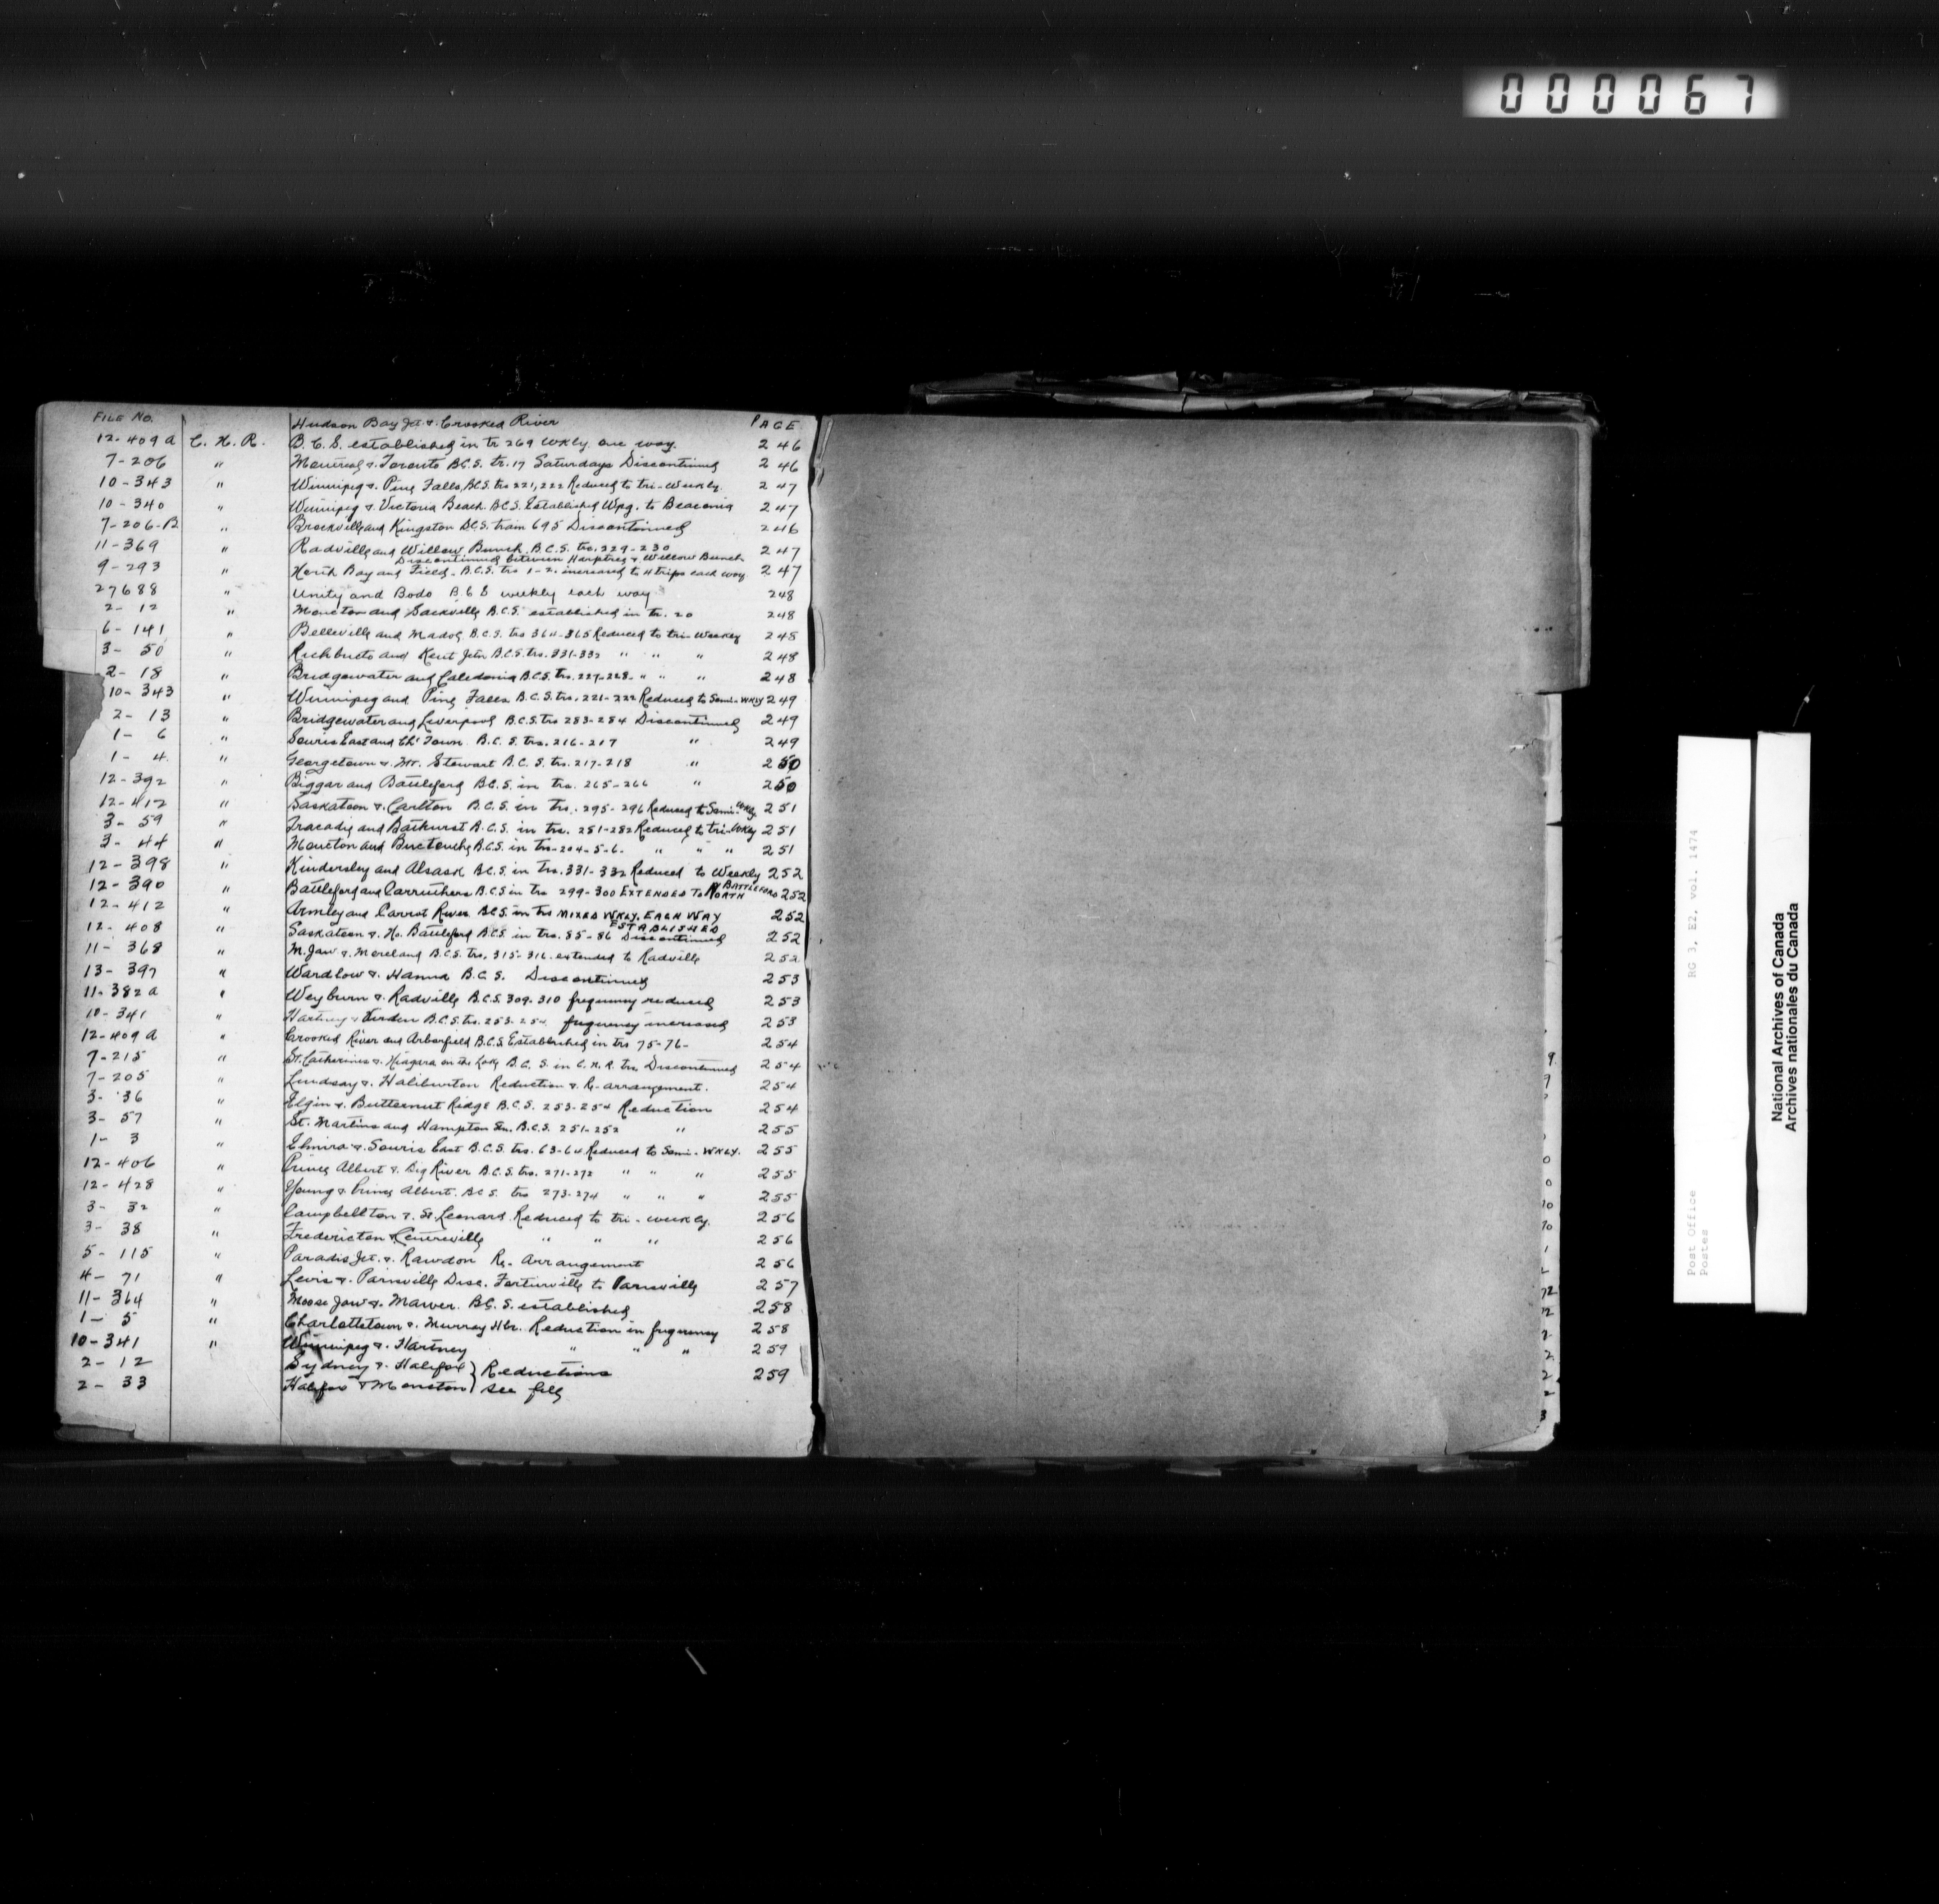 000067
FILE NO. Hudson Bay Jct. & Crooked River PAGE
12-409a C. N. R. B.C.S. established in tr 269 wkly one way. 246
7-206 " Montreal & Toronto B.C.S. tr. 17 Saturdays Discontinued 246
10-343 " Winnipeg & Pine Falls, B.C.S. trs 221, 222 Reduced to tri-weekly. 247
10-340 " Winnipeg & Victoria Beach. B.C.S. Established Wpg. to Beaconia 247
7-206-B " Brockville and Kingston B.C.S. train 695 Discontinued 246
11-369 " Radville and Willow Bunch. B.C.S. trs. 229-230 247
Discontinued between Harptree & Willow Bunch
9-293 " North Bay and Field. B.C.S. trs 1-2. increased to 4 trips each way 247
27688 " Unity and Bodo B.C.S weekly each way 248
2-12 " Moncton and Sackville B.C.S. established in tr. 20 248
6-141 " Belleville and Madoc B.C.S. trs 364-365 Reduced to tri-weekly 248
3-50 " Richbucto and Kent Jctn B.C.S. trs. 331-332 " " " 248
2-18 " Bridgewater and Caledonia B.C.S. trs. 227-228- " " " 248
10-343 " Winnipeg and Pine Falls B.C.S. trs. 221-222 Reduced to Semi-wkly 249
2-13 " Bridgewater and Liverpool B.C.S. trs 283-284 Discontinued 249
1-6 " Souris East and Ch'Town B.C.S. trs. 216-217 " 249
1-4. " Georgetown & Mt. Stewart B.C.S. trs. 217-218 " 250
12-392 " Biggar and Battleford B.C.S. in trs. 265-266 " 250
12-412 " Saskatoon & Carlton B.C.S. in trs. 295-296 Reduced to Semi-wkly 251
3-59 " Tracadie and Bathurst B.C.S. in trs. 281-282 Reduced to tri-wkly 251
3-44 " Moncton and Buctouche B.C.S. in trs-204-5-6. " " " 251
12-398 " Kindersley and Alsask B.C.S. in trs. 331-332 Reduced to Weekly 252
12-390 " Battleford and Carruthers B.C.S in trs 299-300 EXTENDED TO NORTH BATTLEFORD 252
12-412 " Armley and Carrot River. B.C.S. in trs MIXED WKLY. EACH WAY 252
ESTABLISHED
12-408 " Saskatoon & No. Battleford B.C.S. in trs. 85-86 Discontinued 252
11-368 " M. Jaw & Moreland B.C.S. trs. 315-316. extended to Radville 252
13-397 " Wardlow & Hanna B.C.S. Discontinued 253
11-382a " Weyburn & Radville B.C.S. 309-310 frequency reduced 253
10-341 " Hartney & Virden B.C.S. trs. 253-254. frequency increased 253
12-409a " Crooked River and Arborfield B.C.S Established in trs 75-76- 254
7-215 " St. Catherines & Niagara on the Lake B.C.S. in C.N.R. trs. Discontinued 254
7-205 " Lindsay & Haliburton Reduction & Re-arrangement. 254
3-36 " Elgin & Butternut Ridge B.C.S. 253-254 Reduction 254
3-57 " St. Martins and Hampton Stn. B.C.S. 251-252 " 255
1-3 " Elmira & Souris East B.C.S. trs. 63-64 Reduced to Semi-WKLY. 255
12-406 " Prince Albert & Big River B.C.S. trs. 271-272 " " " 255
12-428 " Young & Prince Albert. B.C.S. trs 273-274 " " " 255
3-32 " Campbellton & St. Leonard Reduced to tri-weekly. 256
3-38 " Fredericton & Centreville " " " 256
5-115 " Paradis Jct. & Rawdon Re-Arrangement 256
4-71 " Levis & Parisville Disc. Fortierville to Parisville 257
11-364 " Moose Jaw & Mawer. B.C.S. established 258
1-5 " Charlottetown & Murray Hbr. Reduction in frequency 258
10-341 " Winnipeg & Hartney " " " 259
2-12 Sydney & Halifax } Reductions 259
2-33 Halifax & Moncton } see file
Post Office RG 3, E2, vol. 1474
Postes
National Archives of Canada
Archives nationales du Canada